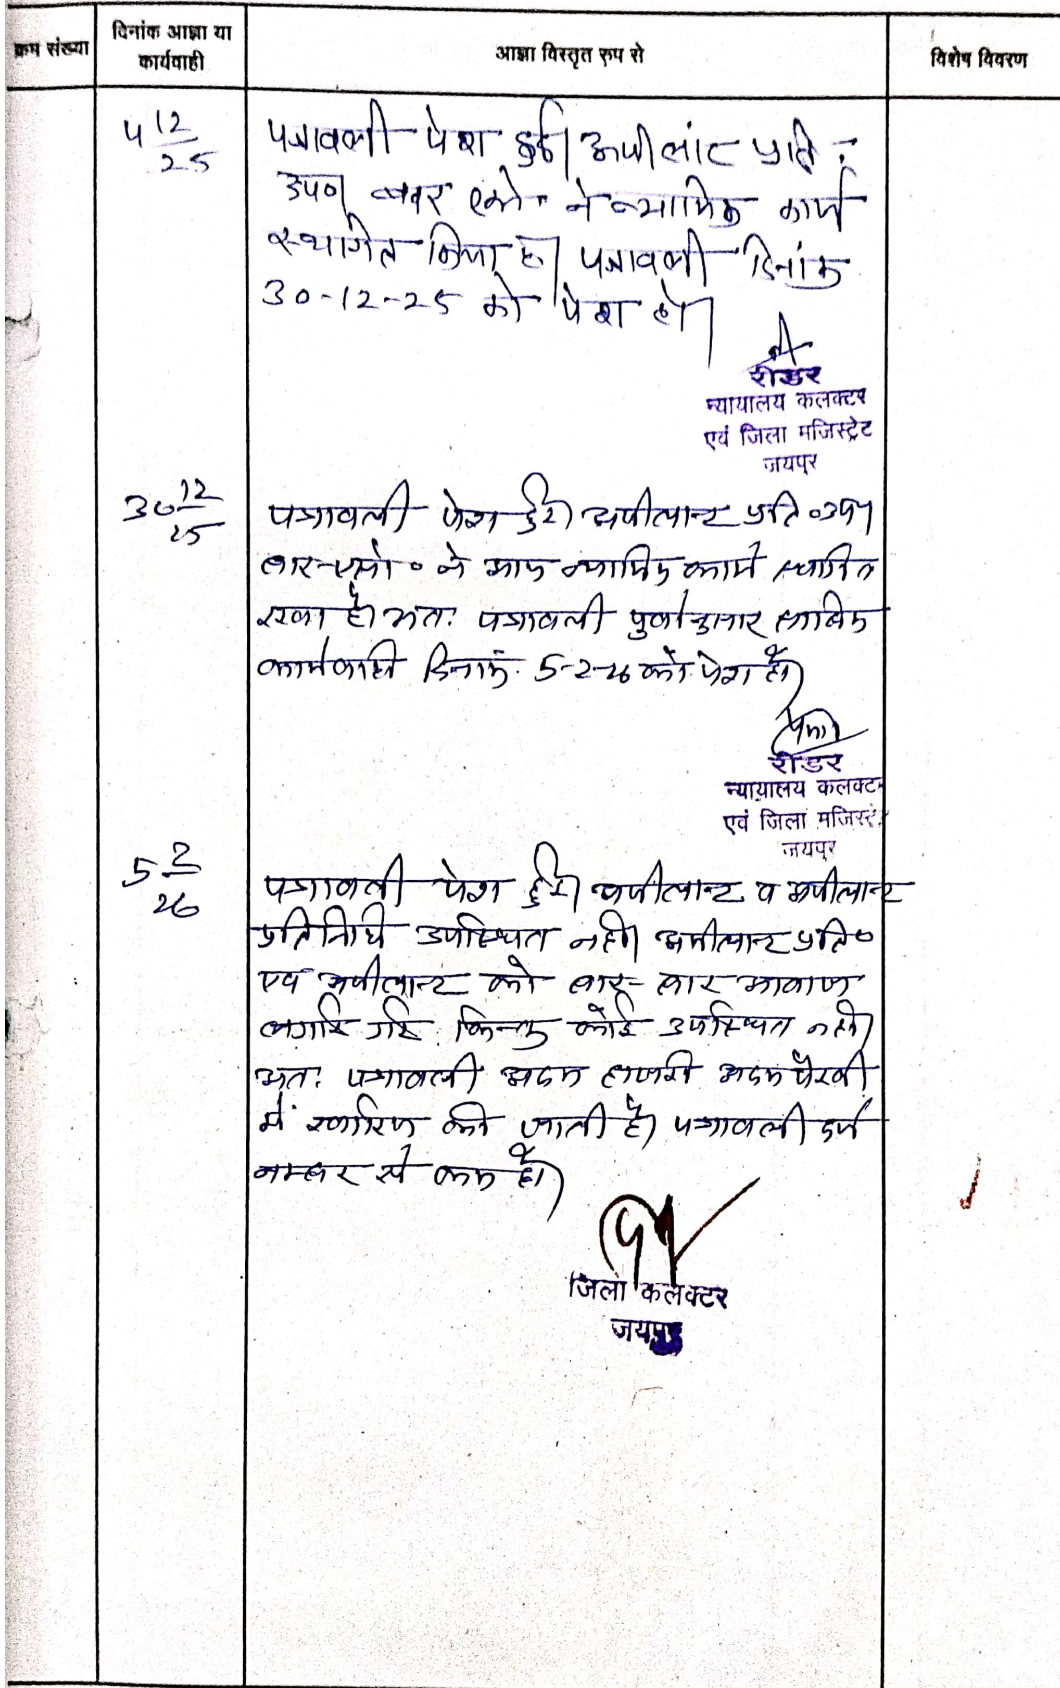 क्रम संख्या
दिनांक आज्ञा या
कार्यवाही
आज्ञा विस्तृत रुप से
विशेष विवरण
4 12/25
पत्रावली पेश हुई। अपीलांट प्रति०
उप०। बार एसो० ने न्यायिक कार्य
स्थगित किया है। पत्रावली दिनांक
30-12-25 को पेश हो।
रीडर
न्यायालय कलक्टर
एवं जिला मजिस्ट्रेट
जयपुर
30 12/25
पत्रावली पेश हुई। अपीलान्ट प्रति० उप०।
बार एसो० ने आज न्यायिक कार्य स्थगित
रखा है। अतः पत्रावली पूर्वानुसार साबिक
कार्यवाही दिनांक 5-2-26 को पेश हो।
रीडर
न्यायालय कलक्टर
एवं जिला मजिस्ट्रे
जयपुर
5 2/26
पत्रावली पेश हुई। अपीलान्ट व अपीलान्ट
प्रतिनिधि उपस्थित नही। अपीलान्ट प्रति०
एवं अपीलान्ट को बार-बार आवाज
लगाई गई किन्तु कोई उपस्थित नही।
अतः पत्रावली अदम हाजरी अदम पैरवी
में खारिज की जाती है। पत्रावली दर्ज
नम्बर से कम हो।
जिला कलक्टर
जयपुर